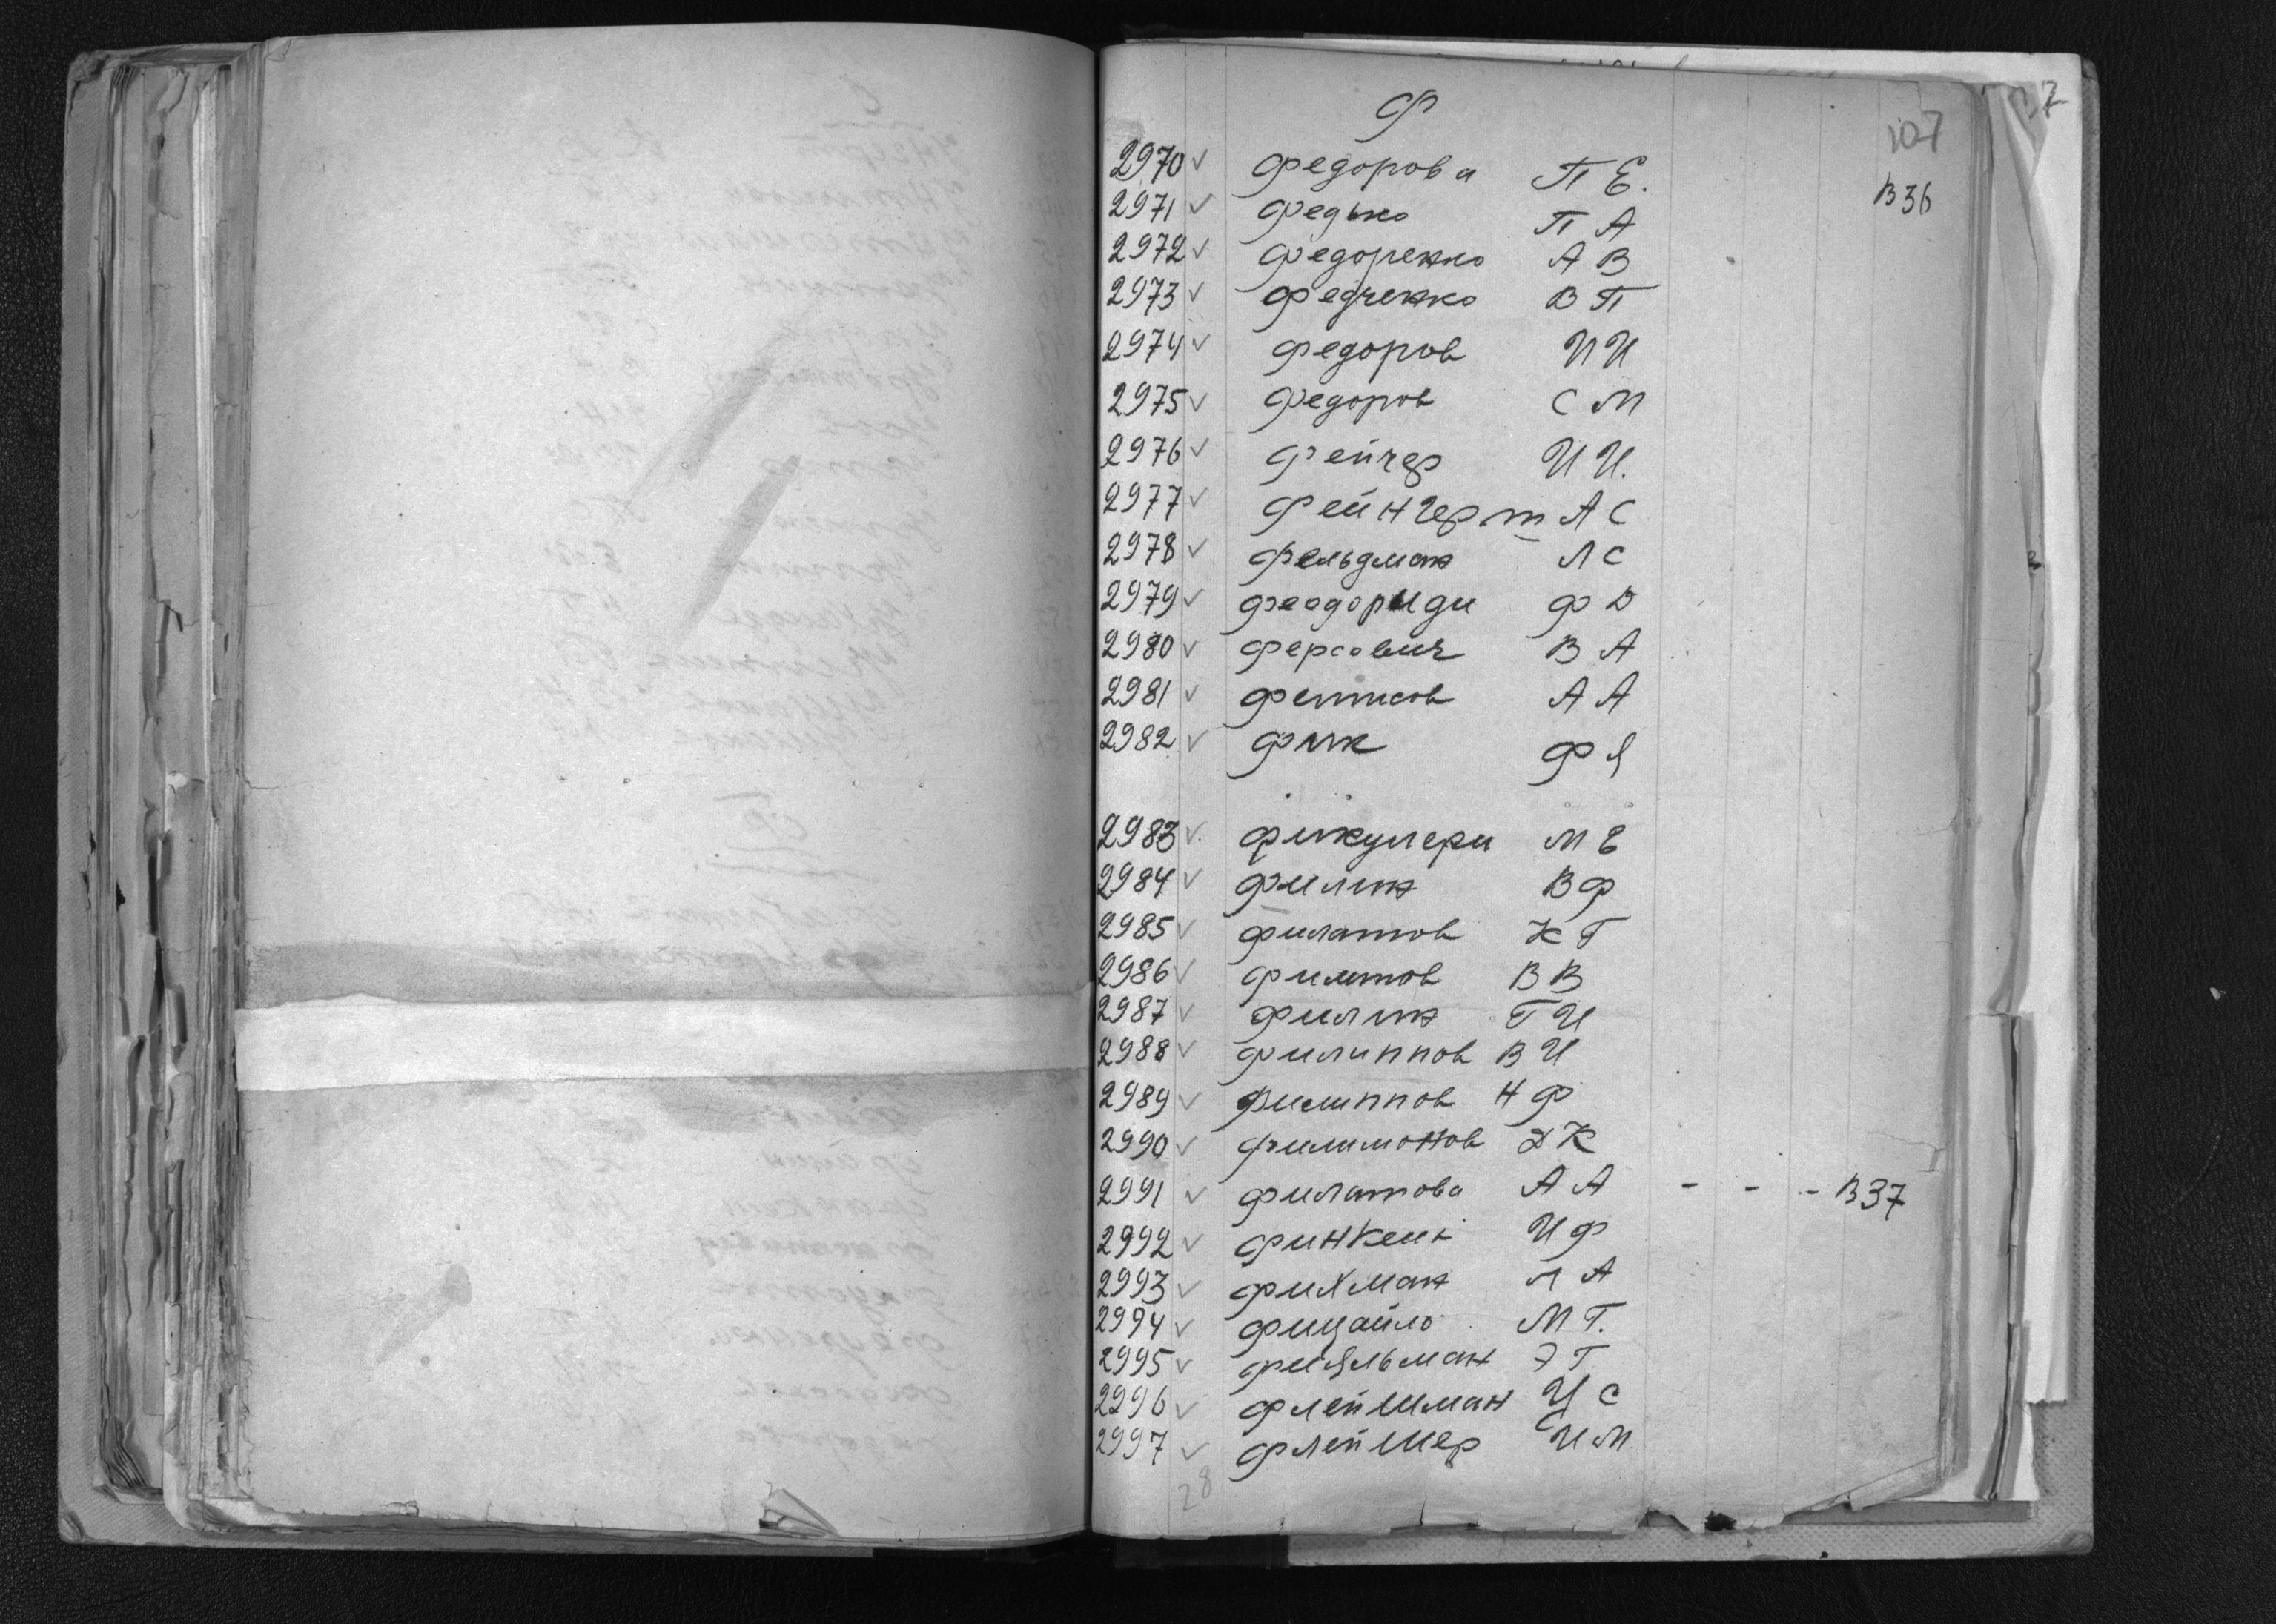 Ф
107
2970 ✓ Федорова П Е. В 36
2971 ✓ Федько П А
2972 ✓ Федоренко А В
2973 ✓ Федченко В П
2974 ✓ Федоров И И
2975 ✓ Федоров С М
2976 ✓ Фейгер И И.
2977 ✓ Фейнгерт А С
2978 ✓ Фельдман Л С
2979 ✓ Феодориди Ф Д
2980 ✓ Ферсович В А
2981 ✓ Фетисов А А
2982 ✓ Фик Ф Я
2983 ✓ Фикулери М Е
2984 ✓ Филин В Ф
2985 ✓ Филатов К Г
2986 ✓ Филатов В В
2987 ✓ Филин Г И
2988 ✓ Филиппов В И
2989 ✓ Филиппов Н Ф
2990 ✓ Филимонов Д К
2991 ✓ Филатова А А - - - В 37
2992 ✓ И Ф
2993 ✓ Фихман Л А
2994 ✓ Фицайло М Г.
2995 ✓ Э Г
2996 ✓ Флейшман И С
2997 ✓ Флейшер И М
28